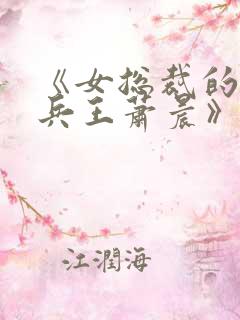 《女总裁的
兵王萧晨》
江潤海